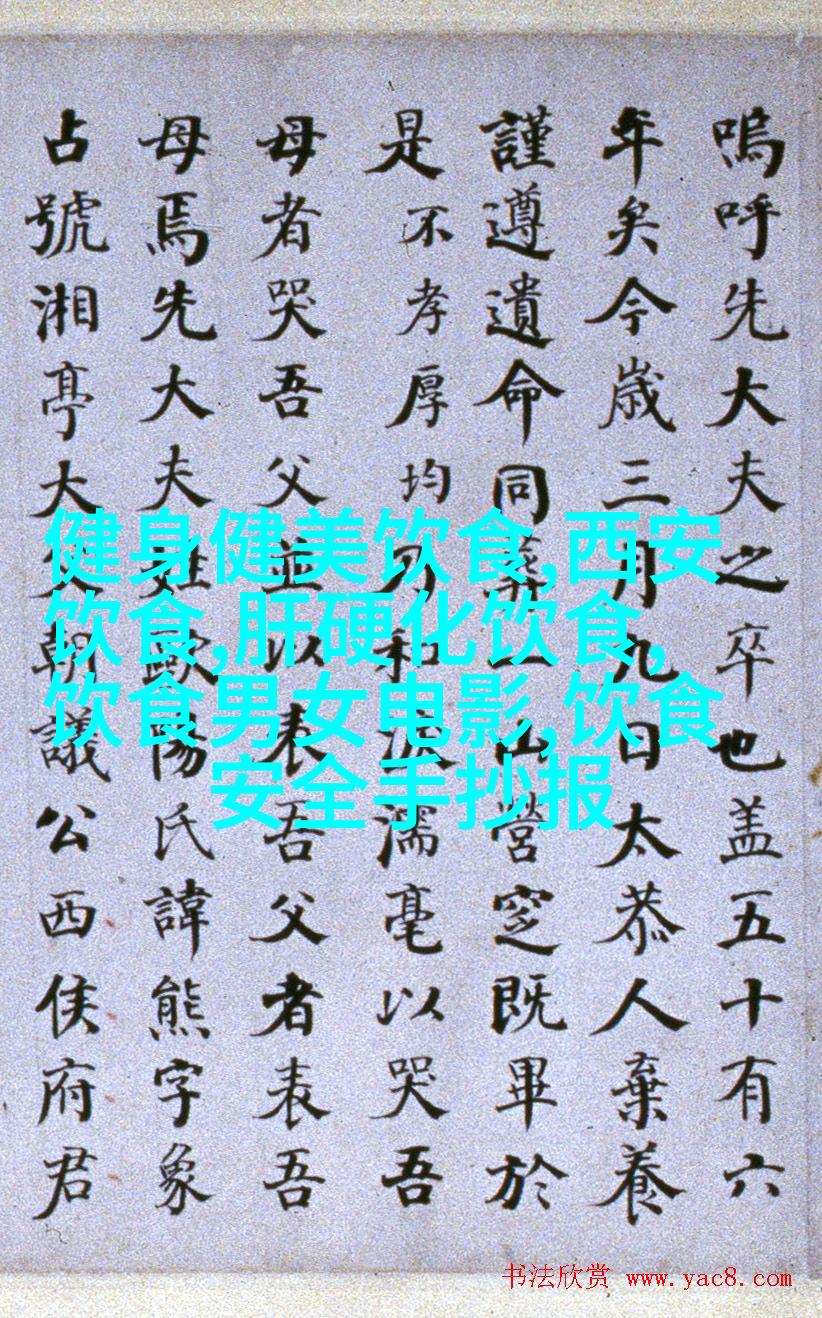 嗚呼先大夫之卒也盖五十有六
年矣今歳三月九日太恭人棄養
謹遵遺命同葬一山營窆既畢於
是不孝厚均刃和淚濡毫以哭吾
母者哭吾父並以表吾父者表吾
母焉先大夫姓歐陽氏諱熊字象
占號湘亭大父朝議公西侯府君
健身健美饮食,西安
饮食,肝硬化饮食,
饮食男女电影,饮食
安全手抄报
书法欣赏 www.yac8.com